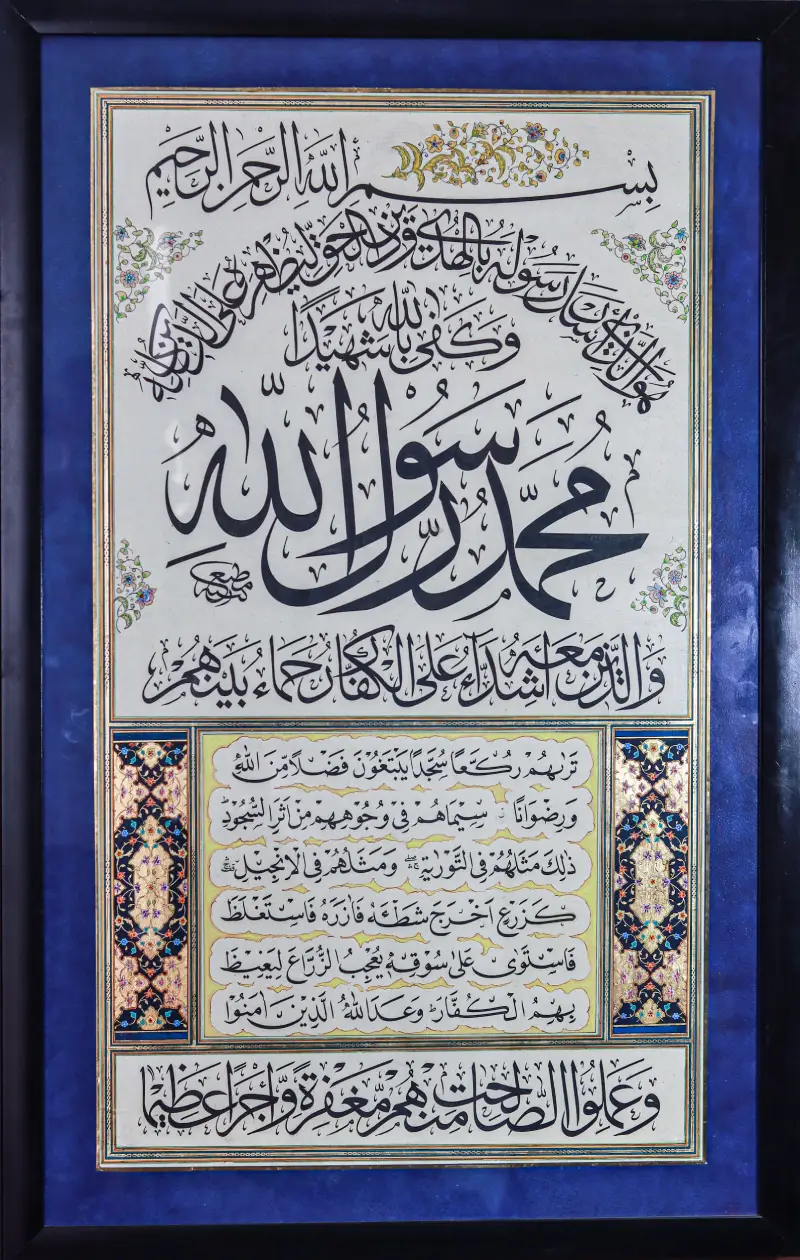 بِسْمِ اللهِ الرَّحْمٰنِ الرَّحِيْمِ
هُوَ الَّذِيْ اَرْسَلَ رَسُوْلَهٗ بِالْهُدٰى وَدِيْنِ الْحَقِّ لِيُظْهِرَهٗ عَلَى الدِّيْنِ كُلِّهٖ
وَكَفٰى بِاللهِ شَهِيْدًا
مُحَمَّدٌ رَّسُوْلُ اللهِ
وَالَّذِيْنَ مَعَهٗ اَشِدَّآءُ عَلَى الْكُفَّارِ رُحَمَآءُ بَيْنَهُمْ
تَرٰىهُمْ رُكَّعًا سُجَّدًا يَّبْتَغُوْنَ فَضْلًا مِّنَ اللهِ
وَرِضْوَانًا سِيْمَاهُمْ فِيْ وُجُوْهِهِمْ مِّنْ اَثَرِ السُّجُوْدِ
ذٰلِكَ مَثَلُهُمْ فِي التَّوْرٰىةِ وَمَثَلُهُمْ فِي الْاِنْجِيْلِ
كَزَرْعٍ اَخْرَجَ شَطْئَهٗ فَاٰزَرَهٗ فَاسْتَغْلَظَ
فَاسْتَوٰى عَلٰى سُوْقِهٖ يُعْجِبُ الزُّرَّاعَ لِيَغِيْظَ
بِهِمُ الْكُفَّارَ وَعَدَ اللهُ الَّذِيْنَ اٰمَنُوْا
وَعَمِلُوا الصّٰلِحٰتِ مِنْهُمْ مَّغْفِرَةً وَّاَجْرًا عَظِيْمًا